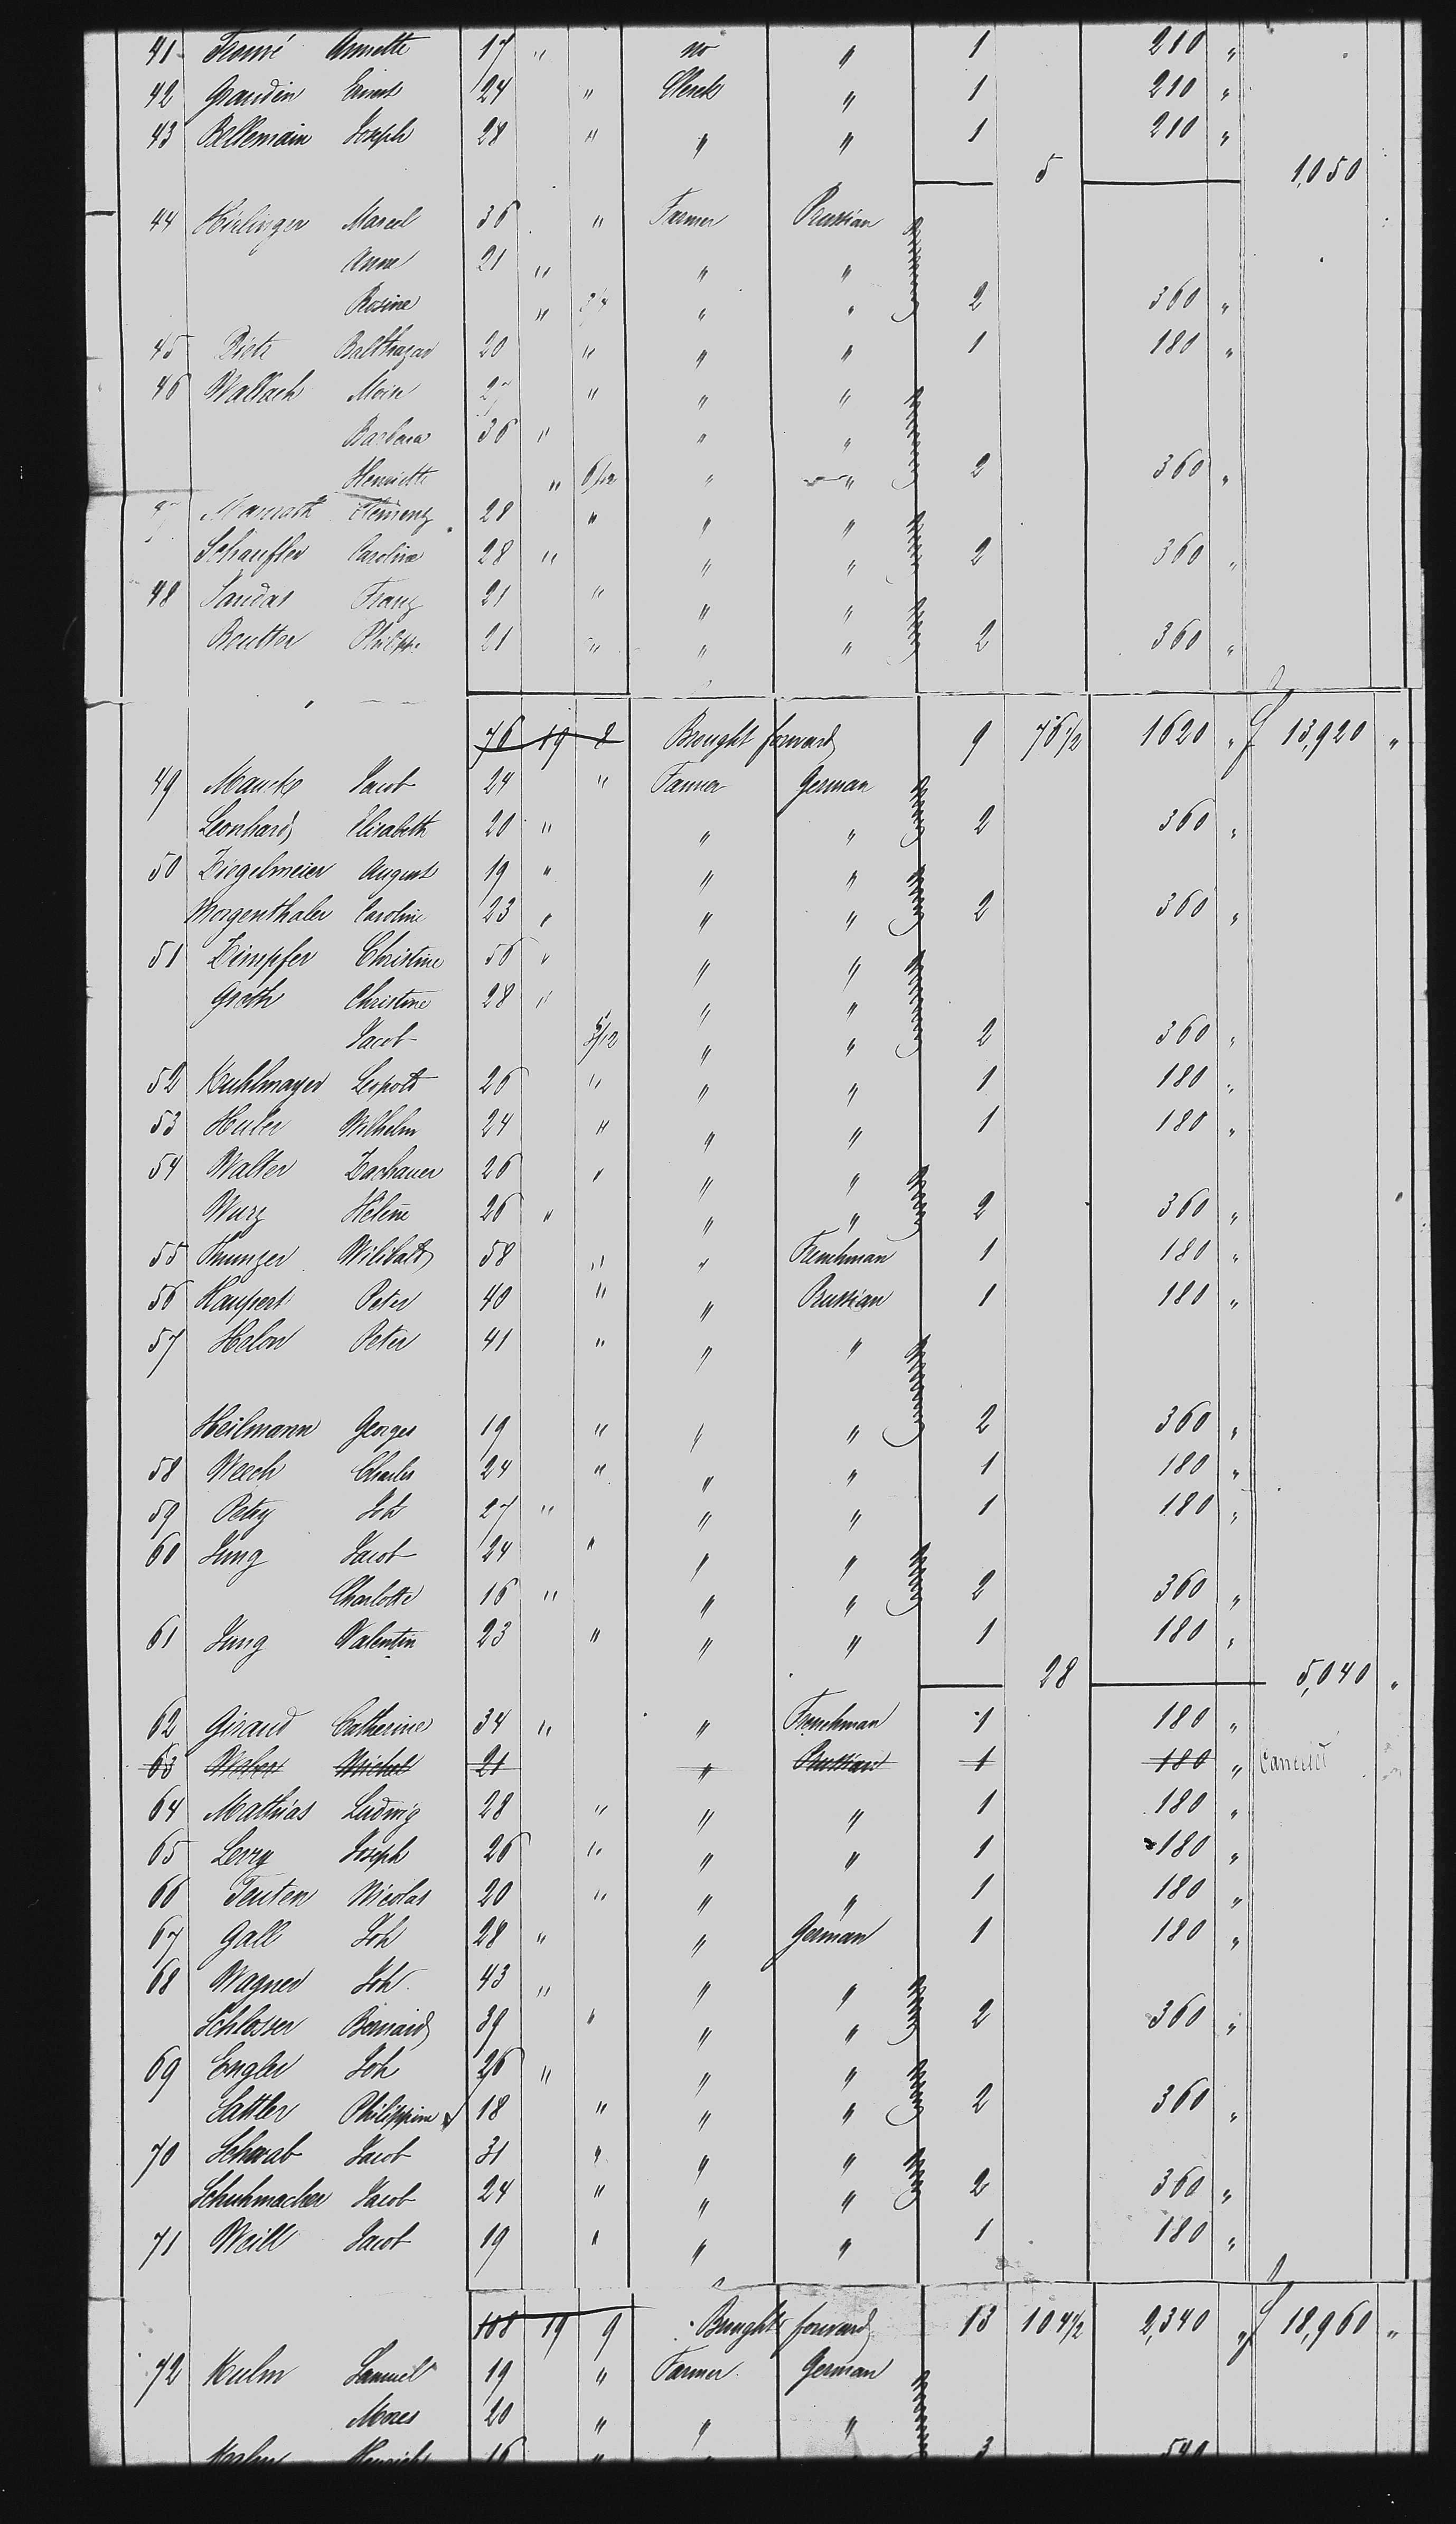 41 Annette 17 " no " 1 210 "
42 Grandin Ernest 24 " Clerck " 1 210 "
43 Bellemain Joseph 28 " " " 1 210 "
5 1,050
44 Hirlinger Marcel 36 " Farmer Prussian
Anna 21 " " "
Rosine " " " 2 360 "
45 Dietz Balthazar 20 " " " 1 180 "
46 Wallach Moise 27 " " "
Barbara 36 " " "
Henriette " 6/12 " " 2 360 "
47 Clemenz 28 " " "
Schaufler Carolina 28 " " " 2 360 "
48 Sandas Franz 21 " " "
Beutter Philipp 21 " " " 2 360 "
76 19 8 Brought forward 9 76 1/2 1620 " f 13,920 "
49 Mauck Jacob 24 " Farmer German
Leonhard Elisabeth 20 " " " 2 360 "
50 Ziegelmeier August 19 " " "
Morgenthaler Caroline 23 " " " 2 360 "
51 Zimpfer Christine 56 " " "
Groth Christine 28 " " "
Jacob 5/12 " " 2 360 "
52 Kuhlmayer Leopold 26 " " " 1 180 "
53 Huler Wilhelm 24 " " " 1 180 "
54 Walter Zachauer 26 " " "
Wurz Helene 26 " " " 2 360 "
55 Thunzer Wilibald 58 " " Frenchman 1 180 "
56 Haupert Peter 40 " " Prussian 1 180 "
57 Helon Peter 41 " " "
Heilmann Georges 19 " " " 2 360 "
58 Weech Charles 24 " " " 1 180 "
59 Petry Joh 27 " " " 1 180 "
60 Jung Jacob 24 " " "
Charlotte 16 " " " 2 360 "
61 Jung Valentin 23 " " " 1 180 "
28 5,040 "
62 Giraud Catherine 34 " " Frenchman 1 180 "
63 Weber Michel 21 " Prussian 1 180 " Cancelled
64 Mathias Ludwig 28 " " " 1 180 "
65 Levy Joseph 26 " " " 1 180 "
66 Teuten Nicolas 20 " " " 1 180 "
67 Gall Joh 28 " " German 1 180 "
68 Wagner Joh 43 " " "
Schlosser Bernard 39 " " " 2 360 "
69 Engler Joh 26 " " "
Sattler Philippine 18 " " " 2 360 "
70 Schwab Jacob 31 " " "
Schuhmacher Jacob 24 " " " 2 360 "
71 Weill Jacob 19 " " " 1 180 "
108 19 9 Brought forward 13 104 1/2 2,340 " f 18,960 "
72 Kulm Samuel 19 " Farmer German
Moses 20 " " "
Heinrich 16 " 3 540